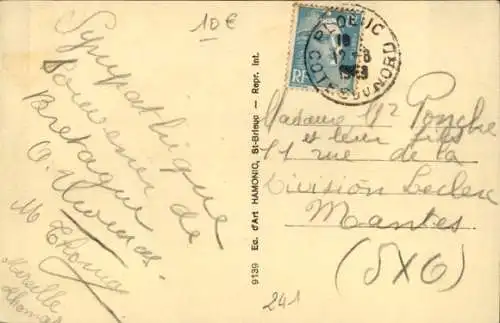 10€
Sympathique
Souvenir de
Bretagne
M Thomas
Mireille
Thomas
9139 Ed. d'Art HAMONIC, St-Brieuc — Repr. Int.
PLOEUC
18
1949
COTES DU NORD
RF
Madame
et leur fils
11 rue de la
Division Leclerc
Mantes
(S X O)
241